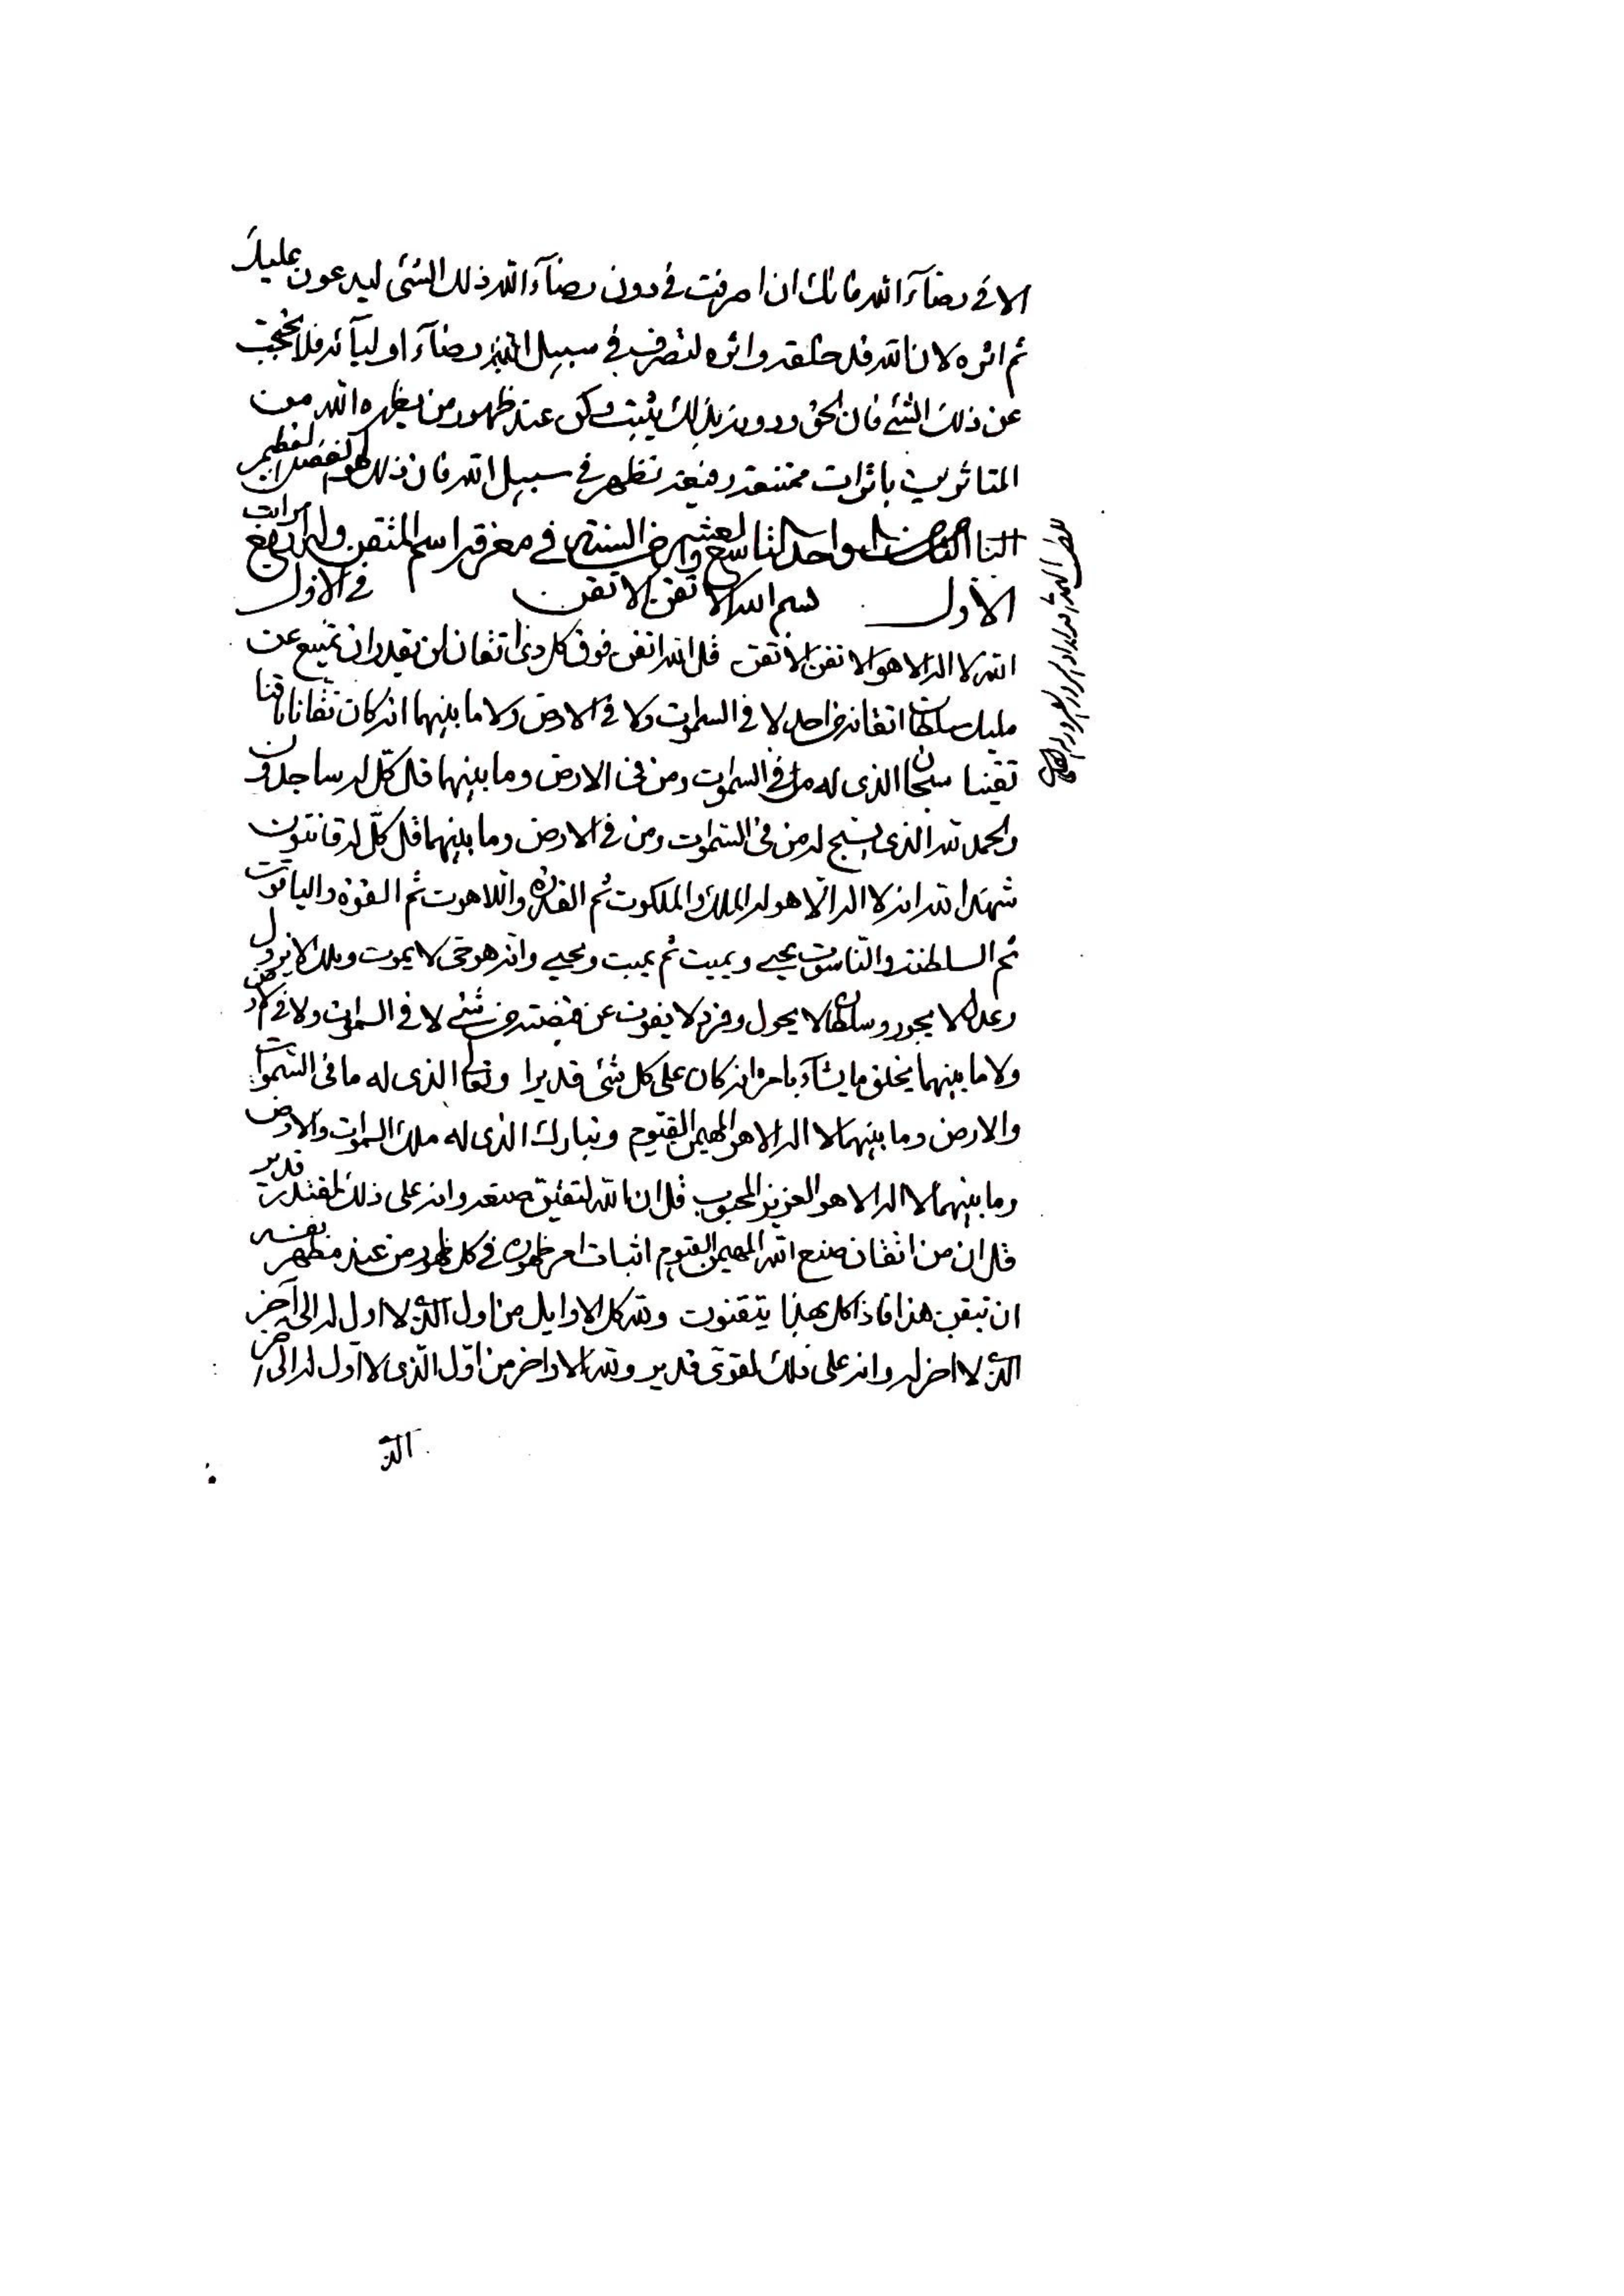 الا في رضآء الله فانك ان اصرفت في دون رضآء الله ذلك الشئ ليدعون عليك
ثم اثره لان الله قد خلقه واثره لتصرف في سبيل الله رضآء اوليآئه فلا تحتجب
عن ذلك الشئ فان الحق ودونه بذلك يثبت وكن عند ظهور من يظهره الله من
المتاثرين باثرات ممتنعة رفيعة تظهر في سبيل الله فان ذلك لهو الفضل العظيم
الواحد التاسع والعشر من السنة في معرفة اسم المتقن وله اربع مراتب
الاول في الاول بسم الله الاتقن الاتقن
الله لا اله الا هو الاتقن الاتقن قل الله اتقن فوق كل ذي اتقان لن يقدر ان يمتنع عن
مليك سلطان اتقانه من احد لا في السموات ولا في الارض ولا ما بينهما انه كان تقانا تاقنا
تقينا سبحان الذي له من في السموات ومن في الارض وما بينهما قل كل له ساجدون
والحمد لله الذي يسبح له من في السموات ومن في الارض وما بينهما قل كل له قانتون
شهد الله انه لا اله الا هو له الملك والملكوت ثم القدرة واللاهوت ثم القوة والياقوت
ثم السلطنة والناسوت يحيي ويميت ثم يميت ويحيي وانه هو حي لا يموت وملك لا يزول
وعدل لا يجور وسلطان لا يحول وفرد لا يفوت عن قبضته من شئ لا في السموات ولا في الارض
ولا ما بينهما يخلق ما يشآء بامره انه كان على كل شئ قديرا وتعالى الذي له ما في السموات
والارض وما بينهما لا اله الا هو المهيمن القيوم وتبارك الذي له ملك السموات والارض
وما بينهما لا اله الا هو العزيز المحبوب قل ان الله لتقنن صنعه وانه على ذلك لمقتدر قدير
قل ان من اتقان صنع الله المهيمن القيوم اثبات امر ظهوره في كل ظهور من عند مظهر نفسه
ان تيقن هذا فاذا كل بهذا يتقنون ولله كل الاوايل من اول الذي لا اول له الى آخر
الذي لا اخر له وانه على ذلك لقوي قدير ولله الاواخر من اول الذي لا اول له الى آخر
الذي